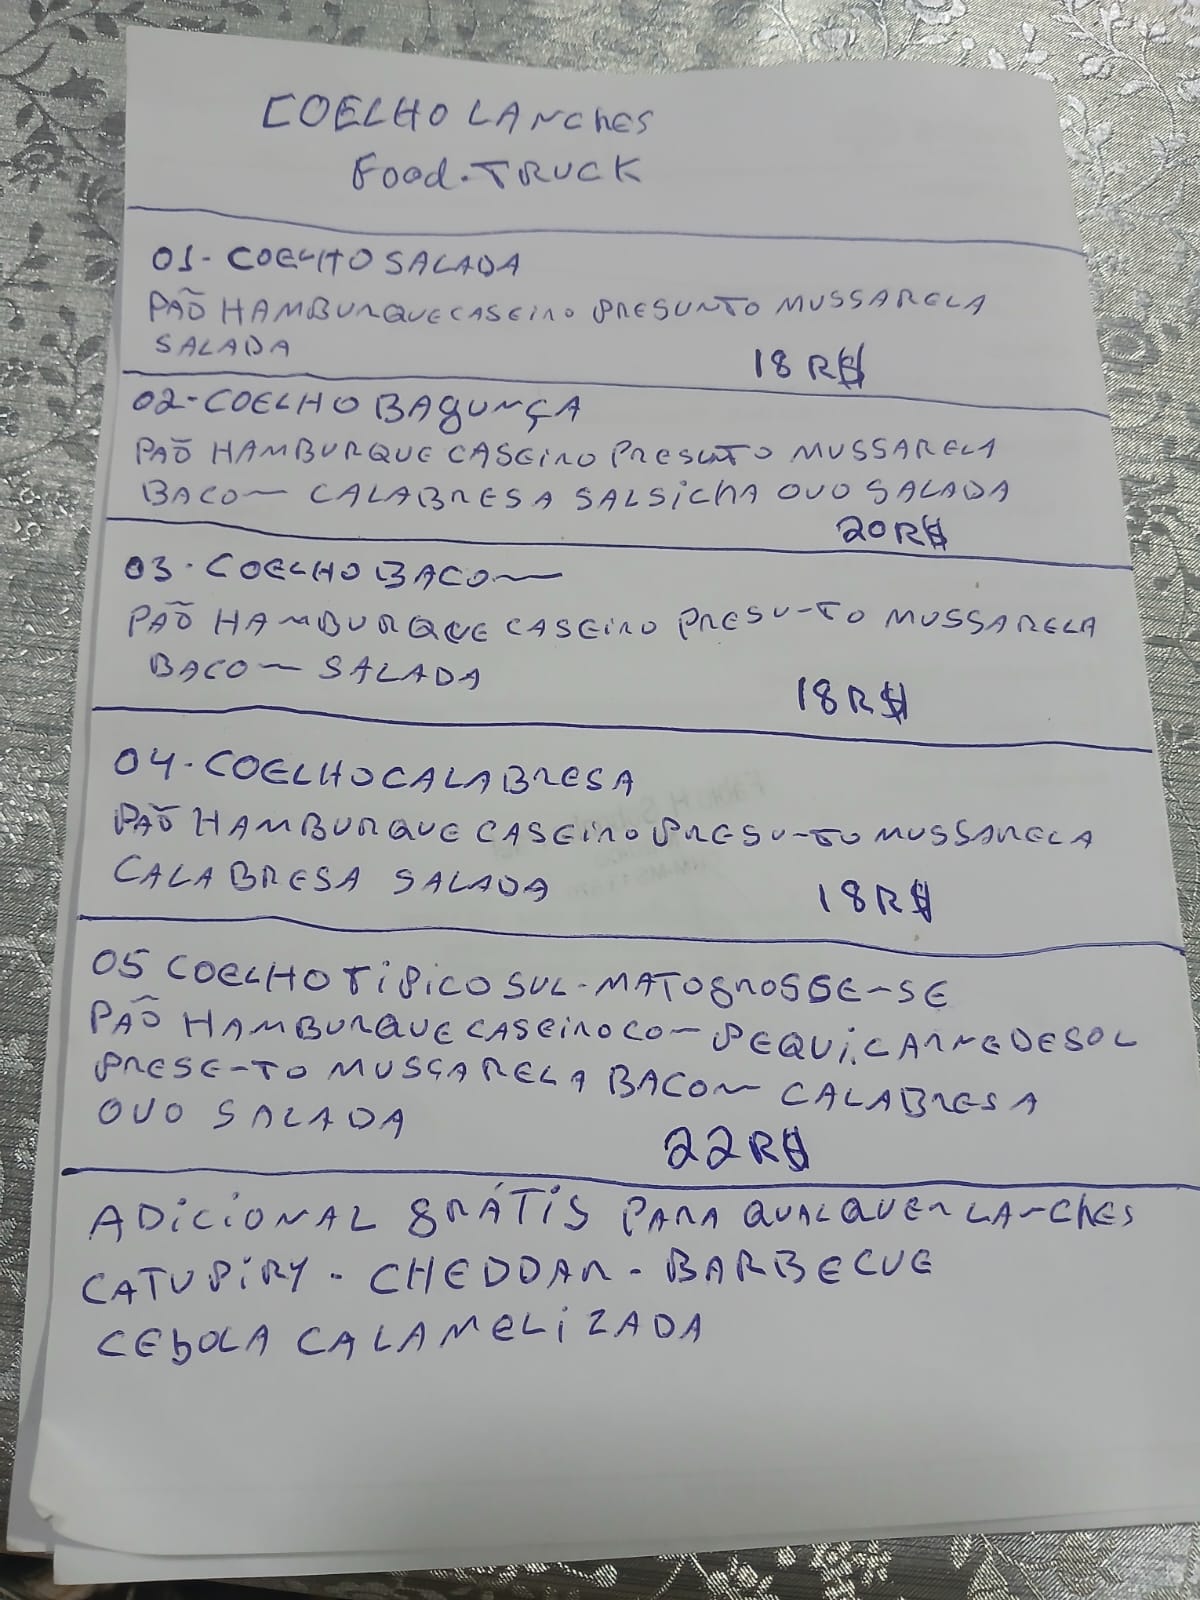 COELHO LANCHES
Food.TRUCK
01- COELHO SALADA
PÃO HAMBURQUE CASEIRO PRESUNTO MUSSARELA
SALADA
18 R$
02- COELHO BAGUNÇA
PÃO HAMBURQUE CASEIRO PRESUNTO MUSSARELA
BACON CALABRESA SALSICHA OVO SALADA
20 R$
03. COELHO BACON
PÃO HAMBURQUE CASEIRO PRESUNTO MUSSARELA
BACON SALADA
18 R$
04- COELHO CALABRESA
PÃO HAMBURQUE CASEIRO PRESUNTO MUSSARELA
CALABRESA SALADA
18 R$
05 COELHO TIPICO SUL-MATOGROSSENSE
PÃO HAMBURQUE CASEIRO CON PEQUI. CARNE DE SOL
PRESENTO MUSSARELA BACON CALABRESA
OVO SALADA
22 R$
ADICIONAL GRÁTIS PARA QUALQUER LANCHES
CATUPIRY - CHEDDAR - BARBECUE
CEBOLA CALAMELIZADA